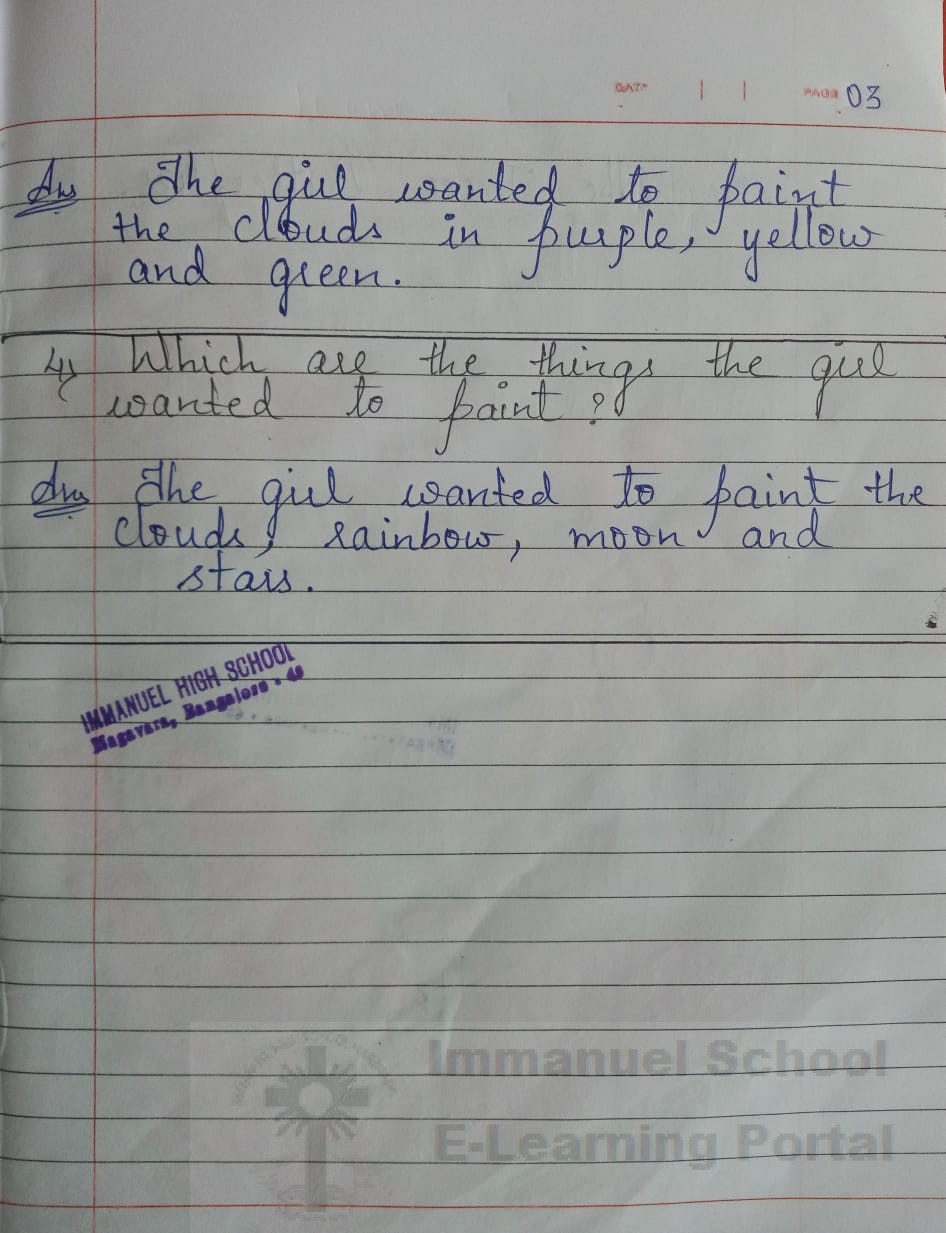 DATE | | PAGE 03
Ans The girl wanted to paint
the clouds in purple, yellow
and green.
4) Which are the things the girl
wanted to paint ?
Ans The girl wanted to paint the
clouds, rainbow, moon and
stars.
IMMANUEL HIGH SCHOOL
Bangalore - 48
Immanuel School
E-Learning Portal